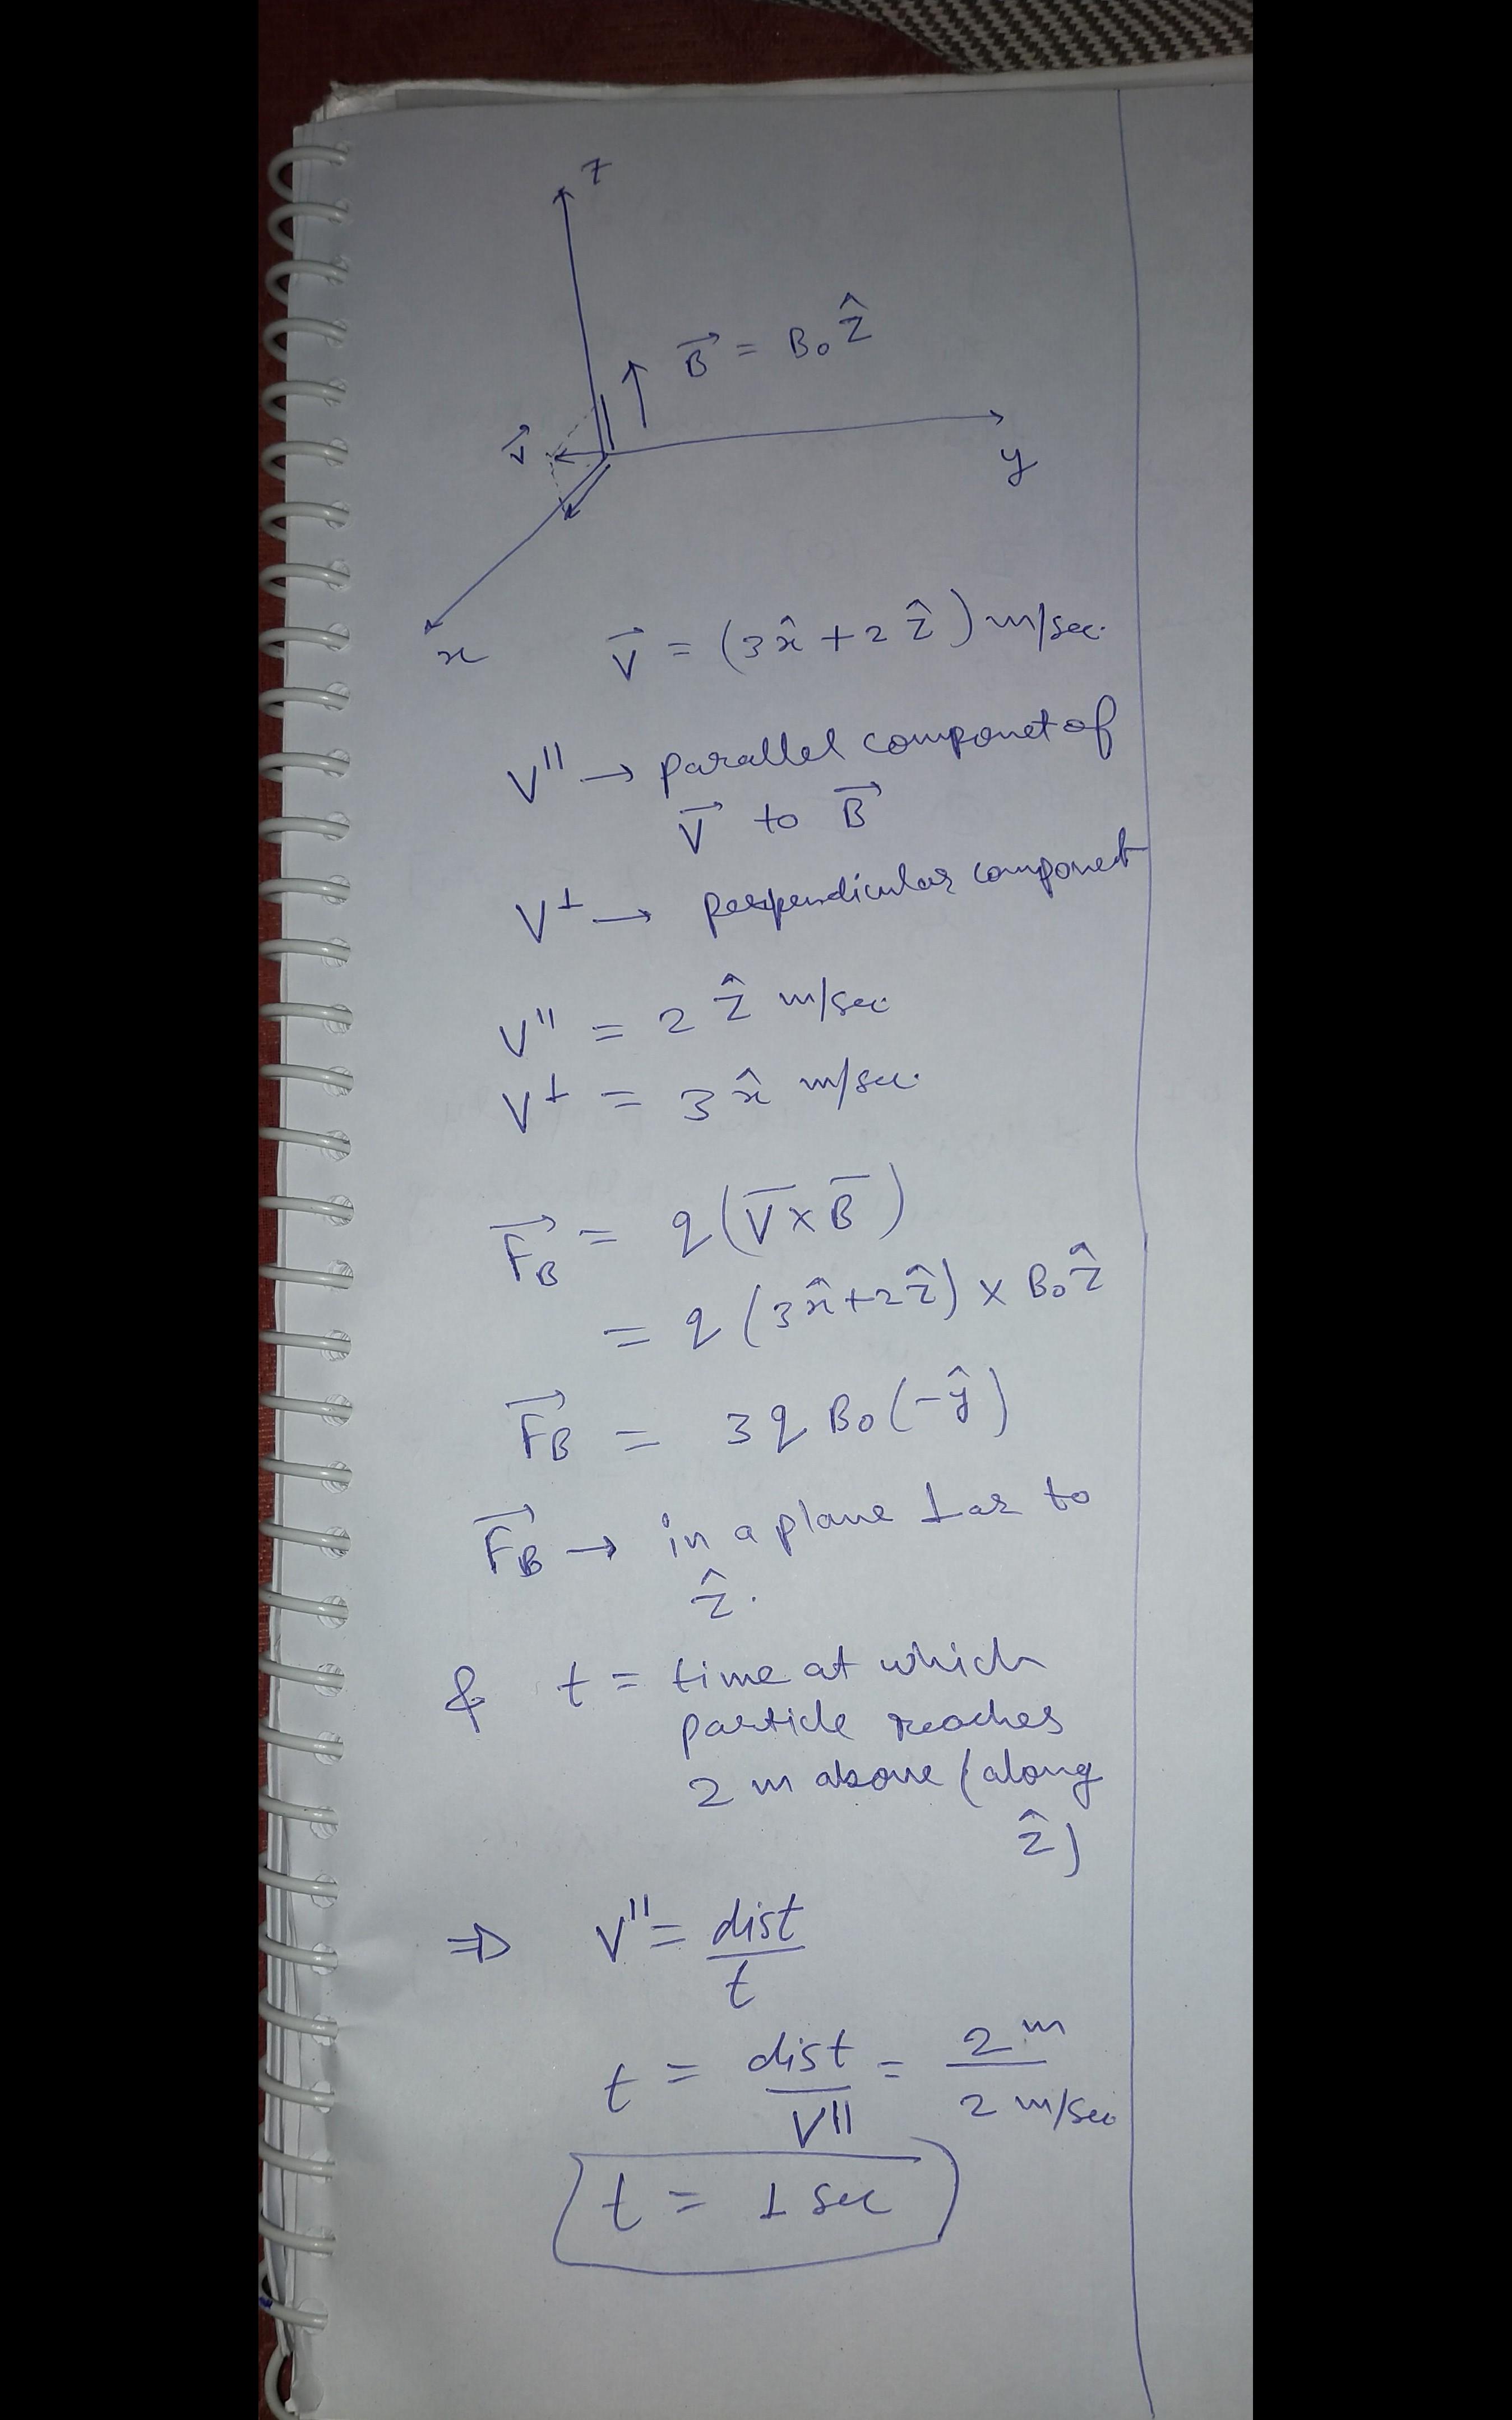 z
B⃗ = B₀ ẑ
v⃗
y
x
V⃗ = (3x̂ + 2ẑ) m/sec.
V∥ → parallel componet of
V⃗ to B⃗
V⊥ → perpendicular componet
V∥ = 2 ẑ m/sec
V⊥ = 3 x̂ m/sec.
F⃗_B = q(V̅ × B̅)
= q (3x̂ + 2ẑ) × B₀ẑ
F⃗_B = 3q B₀(-ŷ)
F⃗_B → in a plane ⊥ar to
ẑ.
& t = time at which
particle reaches
2 m above (along
ẑ)
⇒ V∥ = dist/t
t = dist/V∥ = 2 m/2 m/sec
t = 1 sec